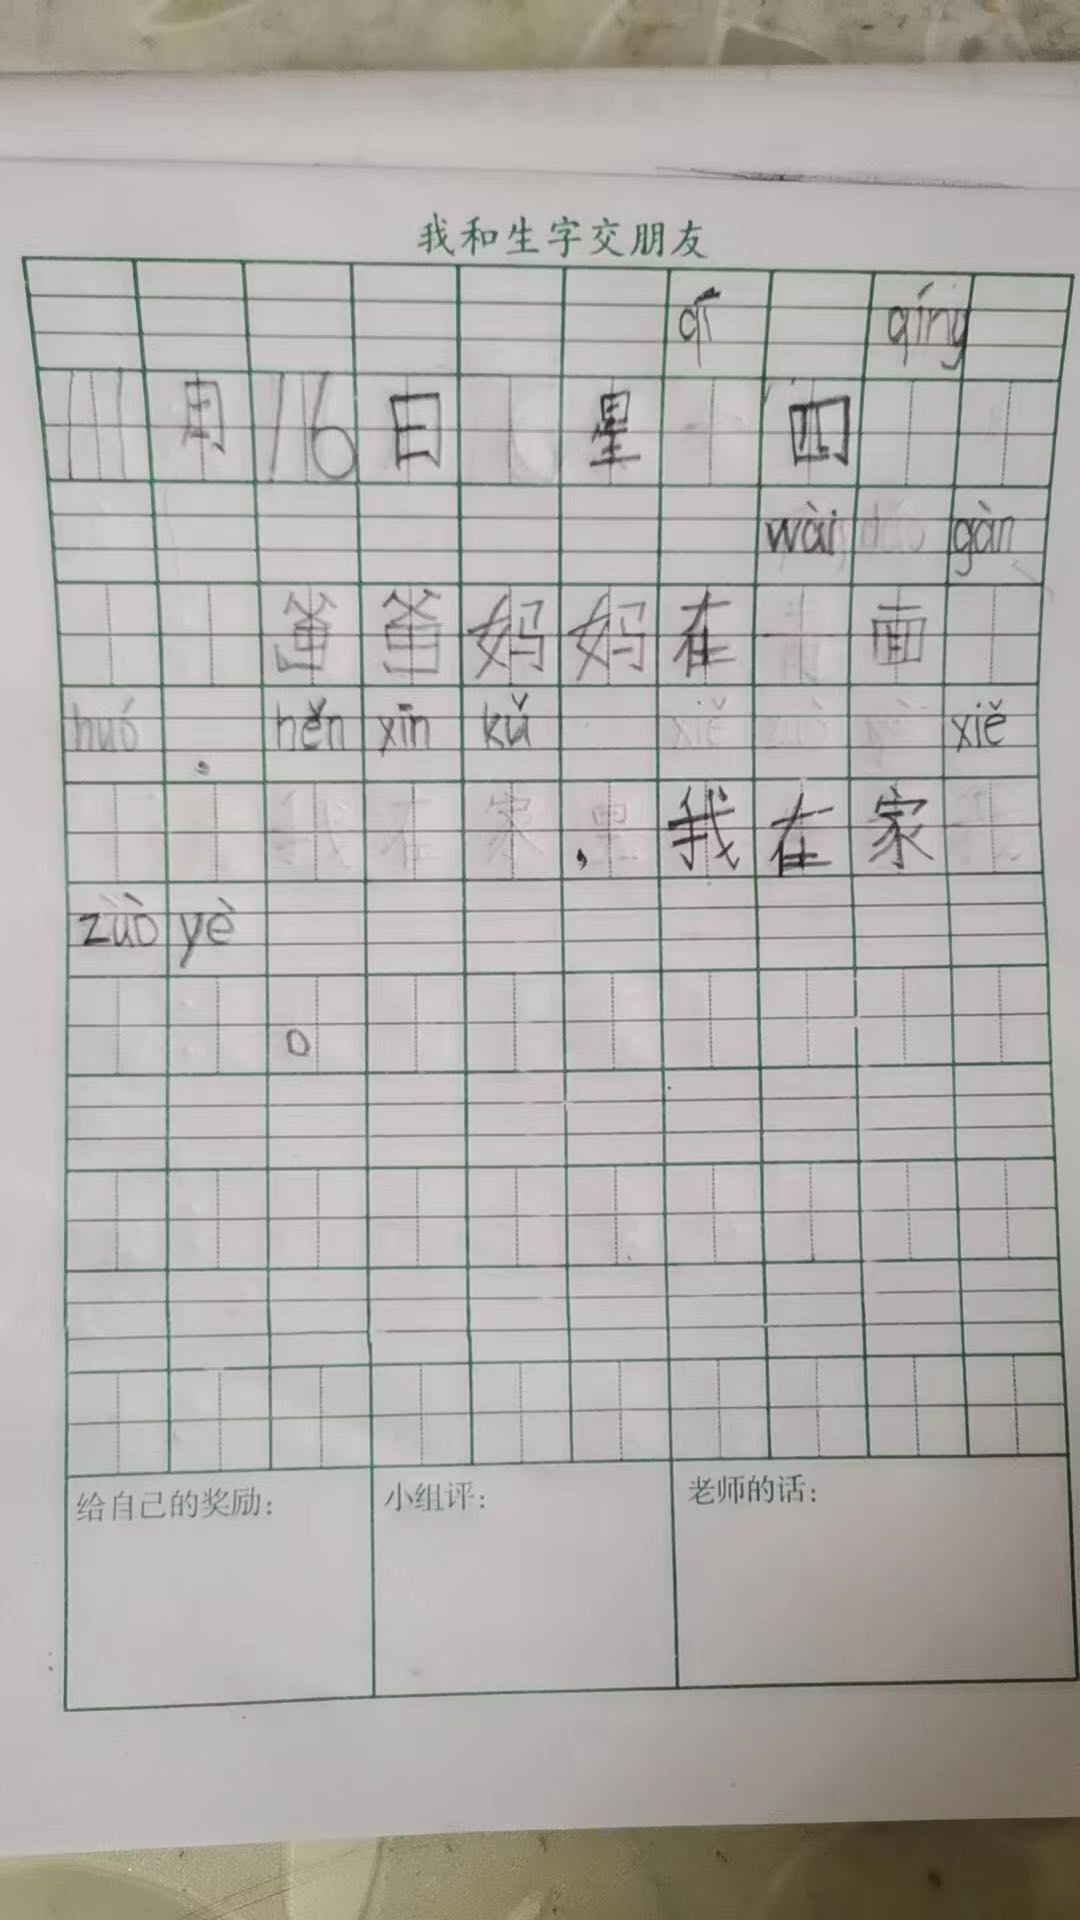 我和生字交朋友
qī qíng
11 月 16 日 星 四
wài gàn
爸 爸 妈 妈 在 面
huó , hěn xīn kǔ xiě
, 我 在 家
zuò yè
。
给自己的奖励: 小组评: 老师的话: